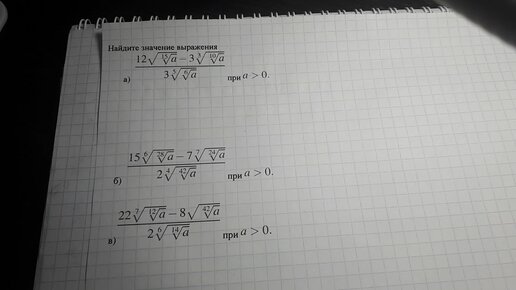 Найдите значение выражения
а) \frac{12\sqrt{\sqrt[15]{a}} - 3\sqrt[3]{\sqrt[10]{a}}}{3\sqrt[5]{\sqrt[6]{a}}} при a > 0.
б) \frac{15\sqrt[6]{\sqrt[28]{a}} - 7\sqrt[7]{\sqrt[24]{a}}}{2\sqrt[4]{\sqrt[42]{a}}} при a > 0.
в) \frac{22\sqrt[7]{\sqrt[12]{a}} - 8\sqrt{\sqrt[42]{a}}}{2\sqrt[6]{\sqrt[14]{a}}} при a > 0.